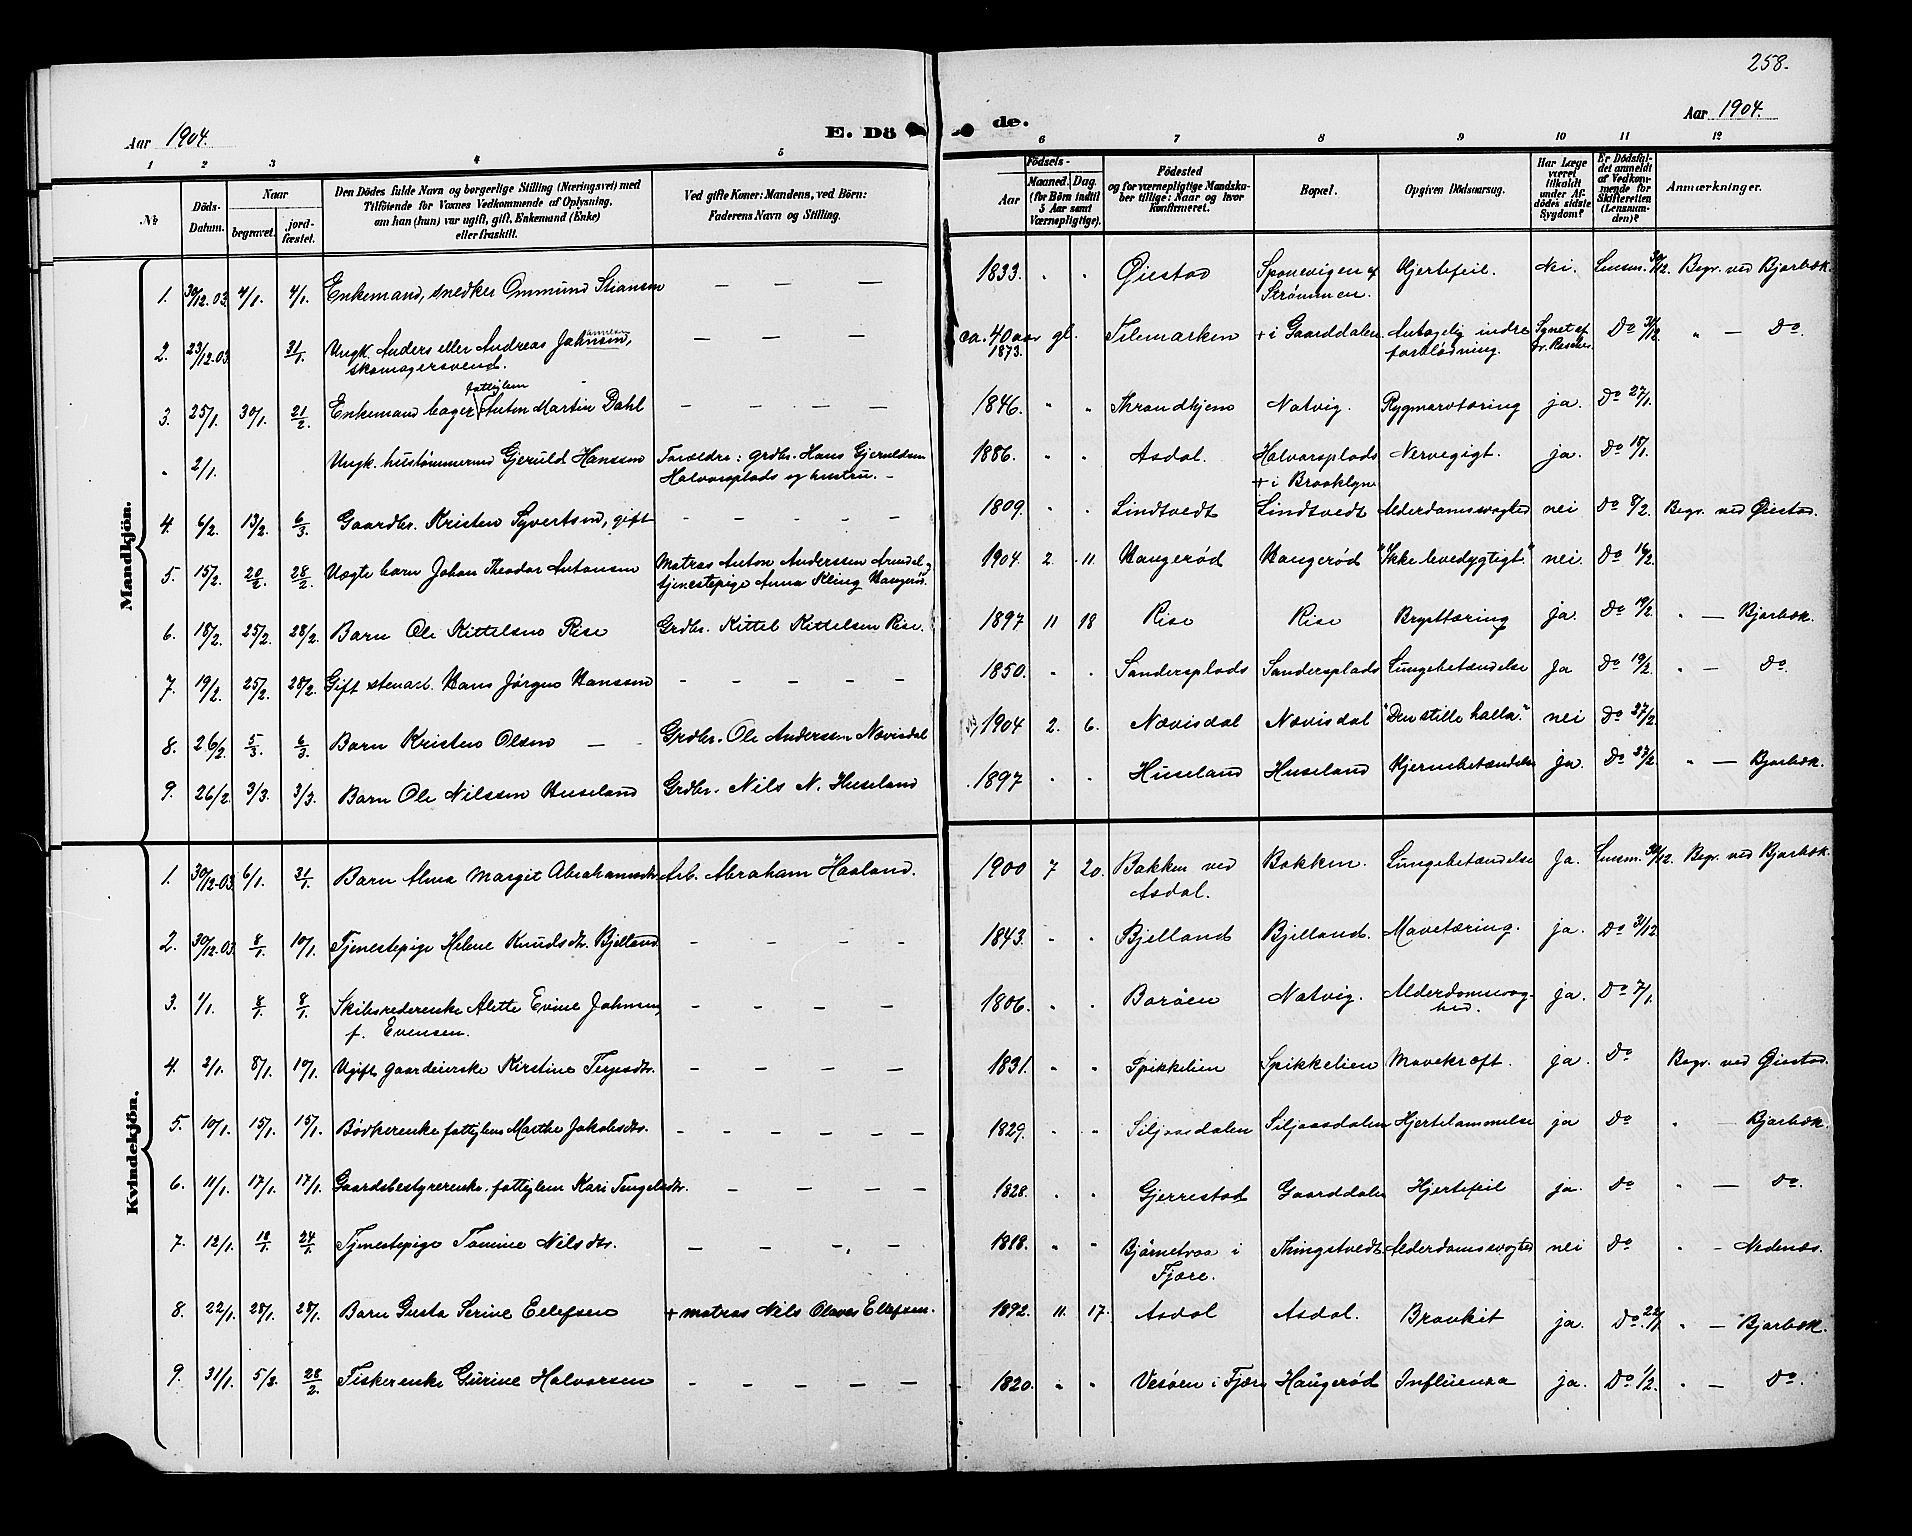 258.
Aar 1904.
E. Dö de.
Aar 1904.
1 2 3 4 5 6 7 8 9 10 11 12
№
Döds-Datum.
Naar
begravet.
jord-fæstet.
Den Dödes fulde Navn og borgerlige Stilling (Næringsvei) med
Tilföiende for Voxnes Vedkommende af Oplysning,
om han (hun) var ugift, gift, Enkemand (Enke)
eller fraskilt.
Ved gifte Koner: Mandens, ved Börn:
Faderens Navn og Stilling.
Födsels-
Aar
Maaned. Dag.
(for Börn indtil
5 Aar samt
Værnepligtige).
Födested
og for værnepligtige Mandska-
ber tillige: Naar og hvor
Konfirmeret.
Bopæl.
Opgiven Dödsaarsag.
Har Læge
været
tilkaldt
under Af-
dödes sidste
Sygdom?
Er Dödsfal-
det anmeldt
af Vedkom-
mende for
Skifteretten
(Lensman-
den)?
Anmærkninger.
Mandkjön.
1. 30/12.03 4/1. 4/1. Enkemand, snedker Ommund Stiansen — — — 1833. " " Øiestad Sponevigen Strømmen. Hjertefeil. Nei. Lensm. 30/12. Begr. ved Bjorbæk.
2. 23/12.03 31/1. Ungk. Anders eller Andreas Johnsen, skomagersvend. — — — ca. 40 aar gl. 1873. Telemarken + i Gaarddalen Antagelig indre forblødning. Synet af Dr. Do 31/12. " — Do.
3. 25/1. 30/1. 21/2. Enkemand bager fattiglem Anton Martin Dahl — — — 1846. " " Thrandhjem Natvig. Rygmarvtæring ja. Do 27/1.
" 2/1. Ungk. hustømmermd Gjeruld Hanssen Forældre: grdbr. Hans Gjeruldsen Halvorsplads og hustru. — 1886. " " Asdal. Halvorsplads + i Brooklyn Nervegigt. ja. Do 18/1.
4. 6/2. 13/2. 6/3. Gaardbr. Kristen Syvertsen, gift — — — — 1809. " " Lindtvedt Lindtvedt Alderdomssvaghed nei Do 8/2. Begr. ved Øiestad.
5. 15/2. 20/2. 28/2. Uægte barn Johan Theodor Antonsen Matros Anton Anderssen Arendal og tjenestepige Anna Kling Haugerød. 1904. 2. 11. Haugerød Haugerød "Ikke levedygtigt." nei. Do 16/2.
6. 18/2. 25/2. 28/2. Barn Ole Kittelsen Rise Grdbr. Kittel Kittelsen Rise. 1897 11 18 Rise Rise Brysttæring ja. Do 19/2. " — Bjorbæk.
7. 19/2. 25/2. 28/2. Gift stenarb. Hans Jørgen Hanssen — — — — — 1850. " " Sandersplads Sandersplads Lungebetændelse Ja Do 19/2. " — Do.
8. 26/2. 5/3. 6/3. Barn Kristen Olsen — — Grdbr. Ole Anderssen Nævisdal 1904 2. 6. Nævisdal Nævisdal "Den stille halla." nei Do 27/2.
9. 26/2. 3/3. 3/3. Barn Ole Nilssen Huseland Grdbr. Nils N. Huseland 1897 " " Huseland Huseland Hjernebetændelse ja. Do 27/2. " — Bjorbæk.
Kvindekjön.
1. 30/12.03. 6/1. 31/1. Barn Alma Margit Abrahamsdtr. Arb. Abraham Haaland. 1900 7 20. Bakken ved Asdal. Bakken. Lungebetændelse Ja. Lensm. 30/12. Begr. ved Bjorbæk.
2. 30/12.03. 8/1. 10/1. Tjenestepige Helene Knudsdtr. Bjelland — — — — 1843. " " Bjelland Bjelland. Mavetæring. ja. Do 31/12
3. 1/1. 8/1. 8/1. Skibsrederenke Alette Evine Johnsen, f. Evensen. — — — — 1806. " " Borøen Natvig. Alderdomssvaghed. ja. Do 7/1.
4. 2/1. 8/1. 10/1. Ugift gaardeierske Kirstine Terjesdtr. — — — — 1831. " " Spikkelien Spikkelien Mavekræft. ja. Do Begr. ved Øiestad.
5. 10/1. 15/1. 15/1. Bødkerenke fattiglem Marthe Jakobsdtr. — — — — — — 1829. " " Siljaasdalen Siljaasdalen Hjertelammelse ja Do " — Bjorbæk.
6. 11/1. 17/1. 17/1. Gaardsbestyrerenke. fattiglem Kari Tengelsdtr. — — — — 1828. " " Gjerrestad Gaarddalen Hjertefeil ja. Do " — Do.
7. 12/1. 18/1. 24/1. Tjenestepige Tomine Nilsdtr. — — — — 1818. " " Bjørnetraa i Fjære. Thingstvedt Alderdomssvaghed nei Do " — Nedenæs.
8. 22/1. 28/1. 28/1. Barn Gusta Serine Ellefsen + matros Nils Olaves Ellefsen. 1892. 11. 17. Asdal Asdal. Bronkit ja. Do. 22/1. " — Bjorbæk.
9. 31/1. 5/2. 28/2. Fiskerenke Gurine Halvorsen — — — — — 1820. " " Vesøen i Fjære Haugerød Influensa ja. Do 1/2. " — Do.